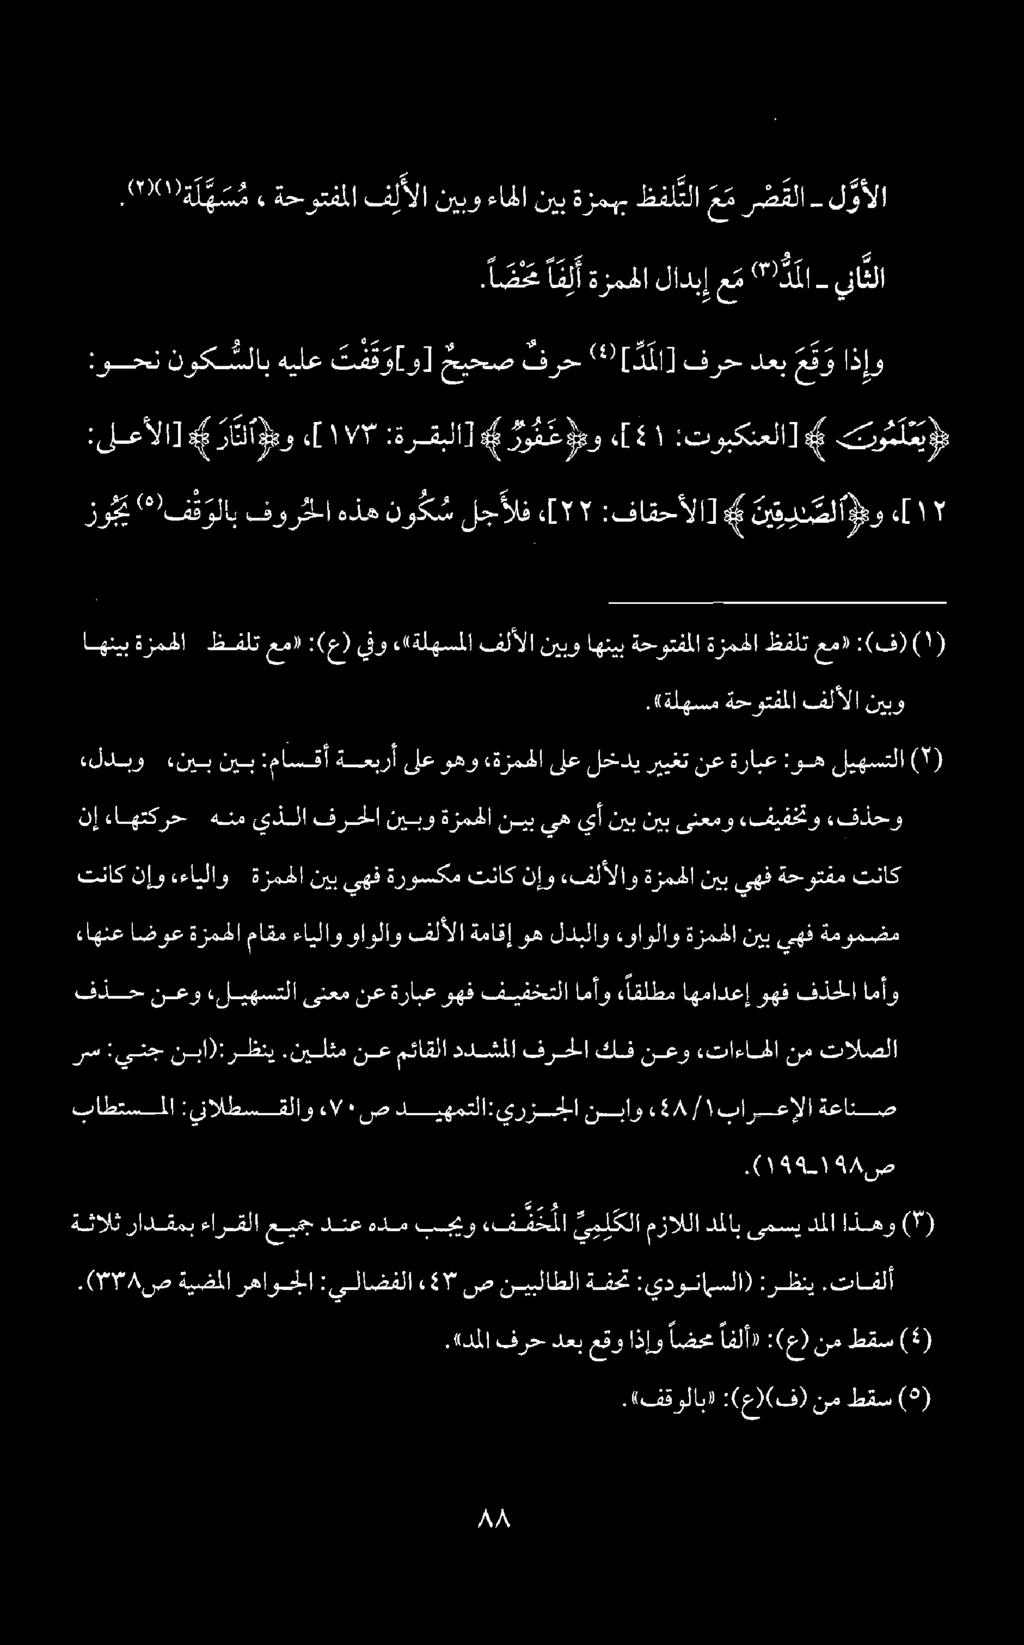 الأوَّل ـ القَصْر مَعَ التَّلفظ بهمزة بين الهاء وبين الأَلِف المفتوحة ، مُسَهَّلَة(١)(٢).
الثَّاني ـ المَدُّ(٣) مَع إبدال الهمزة أَلِفَاً مَحْضَاً.
وإذا وَقَعَ بعد حرف [المَدِّ](٤) حرفٌ صحيحٌ [و]وَقَفْتَ عليه بالسُّكون نحو:
﴿يَعْلَمُونَ﴾ [العنكبوت: ٤١]، و﴿غَفُورٌ﴾ [البقرة: ١٧٣]، و﴿النَّارَ﴾ [الأعلى:
١٢]، و﴿الصَّادِقِينَ﴾ [الأحقاف: ٢٢]، فلأَجل سُكُون هذه الحُروف بالوَقْف(٥) يَجُوز
(١) (ف): «مع تلفظ الهمزة المفتوحة بينها وبين الألف المسهلة»، وفي (ع): «مع تلفظ الهمزة بينها
وبين الألف المفتوحة مسهلة».
(٢) التسهيل هو: عبارة عن تغيير يدخل على الهمزة، وهو على أربعة أقسام: بين بين، وبدل،
وحذف، وتخفيف، ومعنى بين بين أي هي بين الهمزة وبين الحرف الذي منه حركتها، إن
كانت مفتوحة فهي بين الهمزة والألف، وإن كانت مكسورة فهي بين الهمزة والياء، وإن كانت
مضمومة فهي بين الهمزة والواو، والبدل هو إقامة الألف والواو والياء مقام الهمزة عوضا عنها،
وأما الحذف فهو إعدامها مطلقاً، وأما التخفيف فهو عبارة عن معنى التسهيل، وعن حذف
الصلات من الهاءات، وعن فك الحرف المشدد القائم عن مثلين. ينظر:(ابن جني: سر
صناعة الإعراب١/ ٤٨، وابن الجزري:التمهيد ص ٧٠، والقسطلاني: المستطاب
ص١٩٨ـ١٩٩).
(٣) وهذا المد يسمى بالمد اللازم الكَلِمِيِّ المُخَفَّف، ويجب مده عند جميع القراء بمقدار ثلاثة
ألفات. ينظر: (السمانودي: تحفة الطالبين ص ٤٣، الفضالي: الجواهر المضية ص٣٣٨).
(٤) سقط من (ع): «ألفاً محضاً وإذا وقع بعد حرف المد».
(٥) سقط من (ف)(ع): «بالوقف».
٨٨